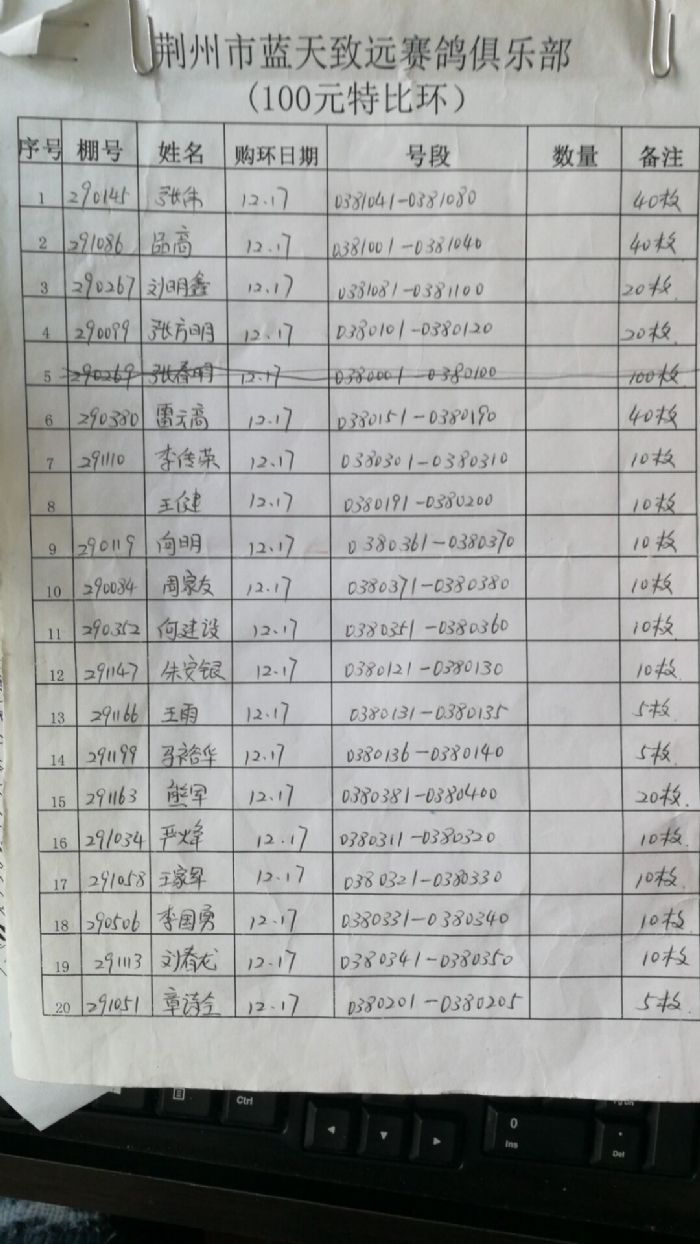 荆州市蓝天致远赛鸽俱乐部
(100元特比环)
序号 棚号 姓名 购环日期 号段 数量 备注
1 290145 张伟 12.17 0381041-0381080 40枚
2 291086 吕高 12.17 0381001-0381040 40枚
3 290267 刘明鑫 12.17 0381081-0381100 20枚
4 290099 张方明 12.17 0380101-0380120 20枚
5 290269 张春明 12.17 0380001-0380100 100枚
6 290380 雷云高 12.17 0380151-0380190 40枚
7 291110 李传荣 12.17 0380301-0380310 10枚
8 王健 12.17 0380191-0380200 10枚
9 290119 向明 12.17 0380361-0380370 10枚
10 290084 周家友 12.17 0380371-0380380 10枚
11 290352 何建设 12.17 0380351-0380360 10枚
12 291147 朱安银 12.17 0380121-0380130 10枚
13 291166 王雨 12.17 0380131-0380135 5枚
14 291199 马裕华 12.17 0380136-0380140 5枚
15 291163 熊军 12.17 0380381-0380400 20枚
16 291034 严烽 12.17 0380311-0380320 10枚
17 291058 王家军 12.17 0380321-0380330 10枚
18 290506 李国勇 12.17 0380331-0380340 10枚
19 291113 刘春龙 12.17 0380341-0380350 10枚
20 291051 章诗全 12.17 0380201-0380205 5枚
Ctrl
0
Ins
Del